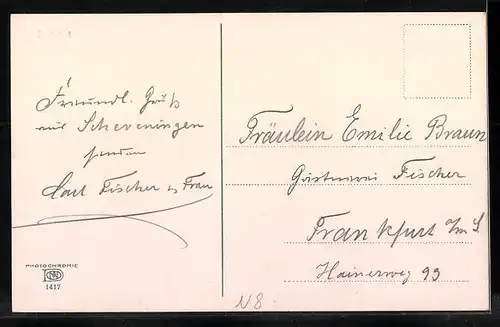 Freundl. Gruß
aus Scheveningen
senden
Carl Fischer u Frau
Fräulein Emilie Braun
Gärtnerei Fischer
Frankfurt a/m S.
Hainerweg 99
PHOTOCHROMIE
1417
N8